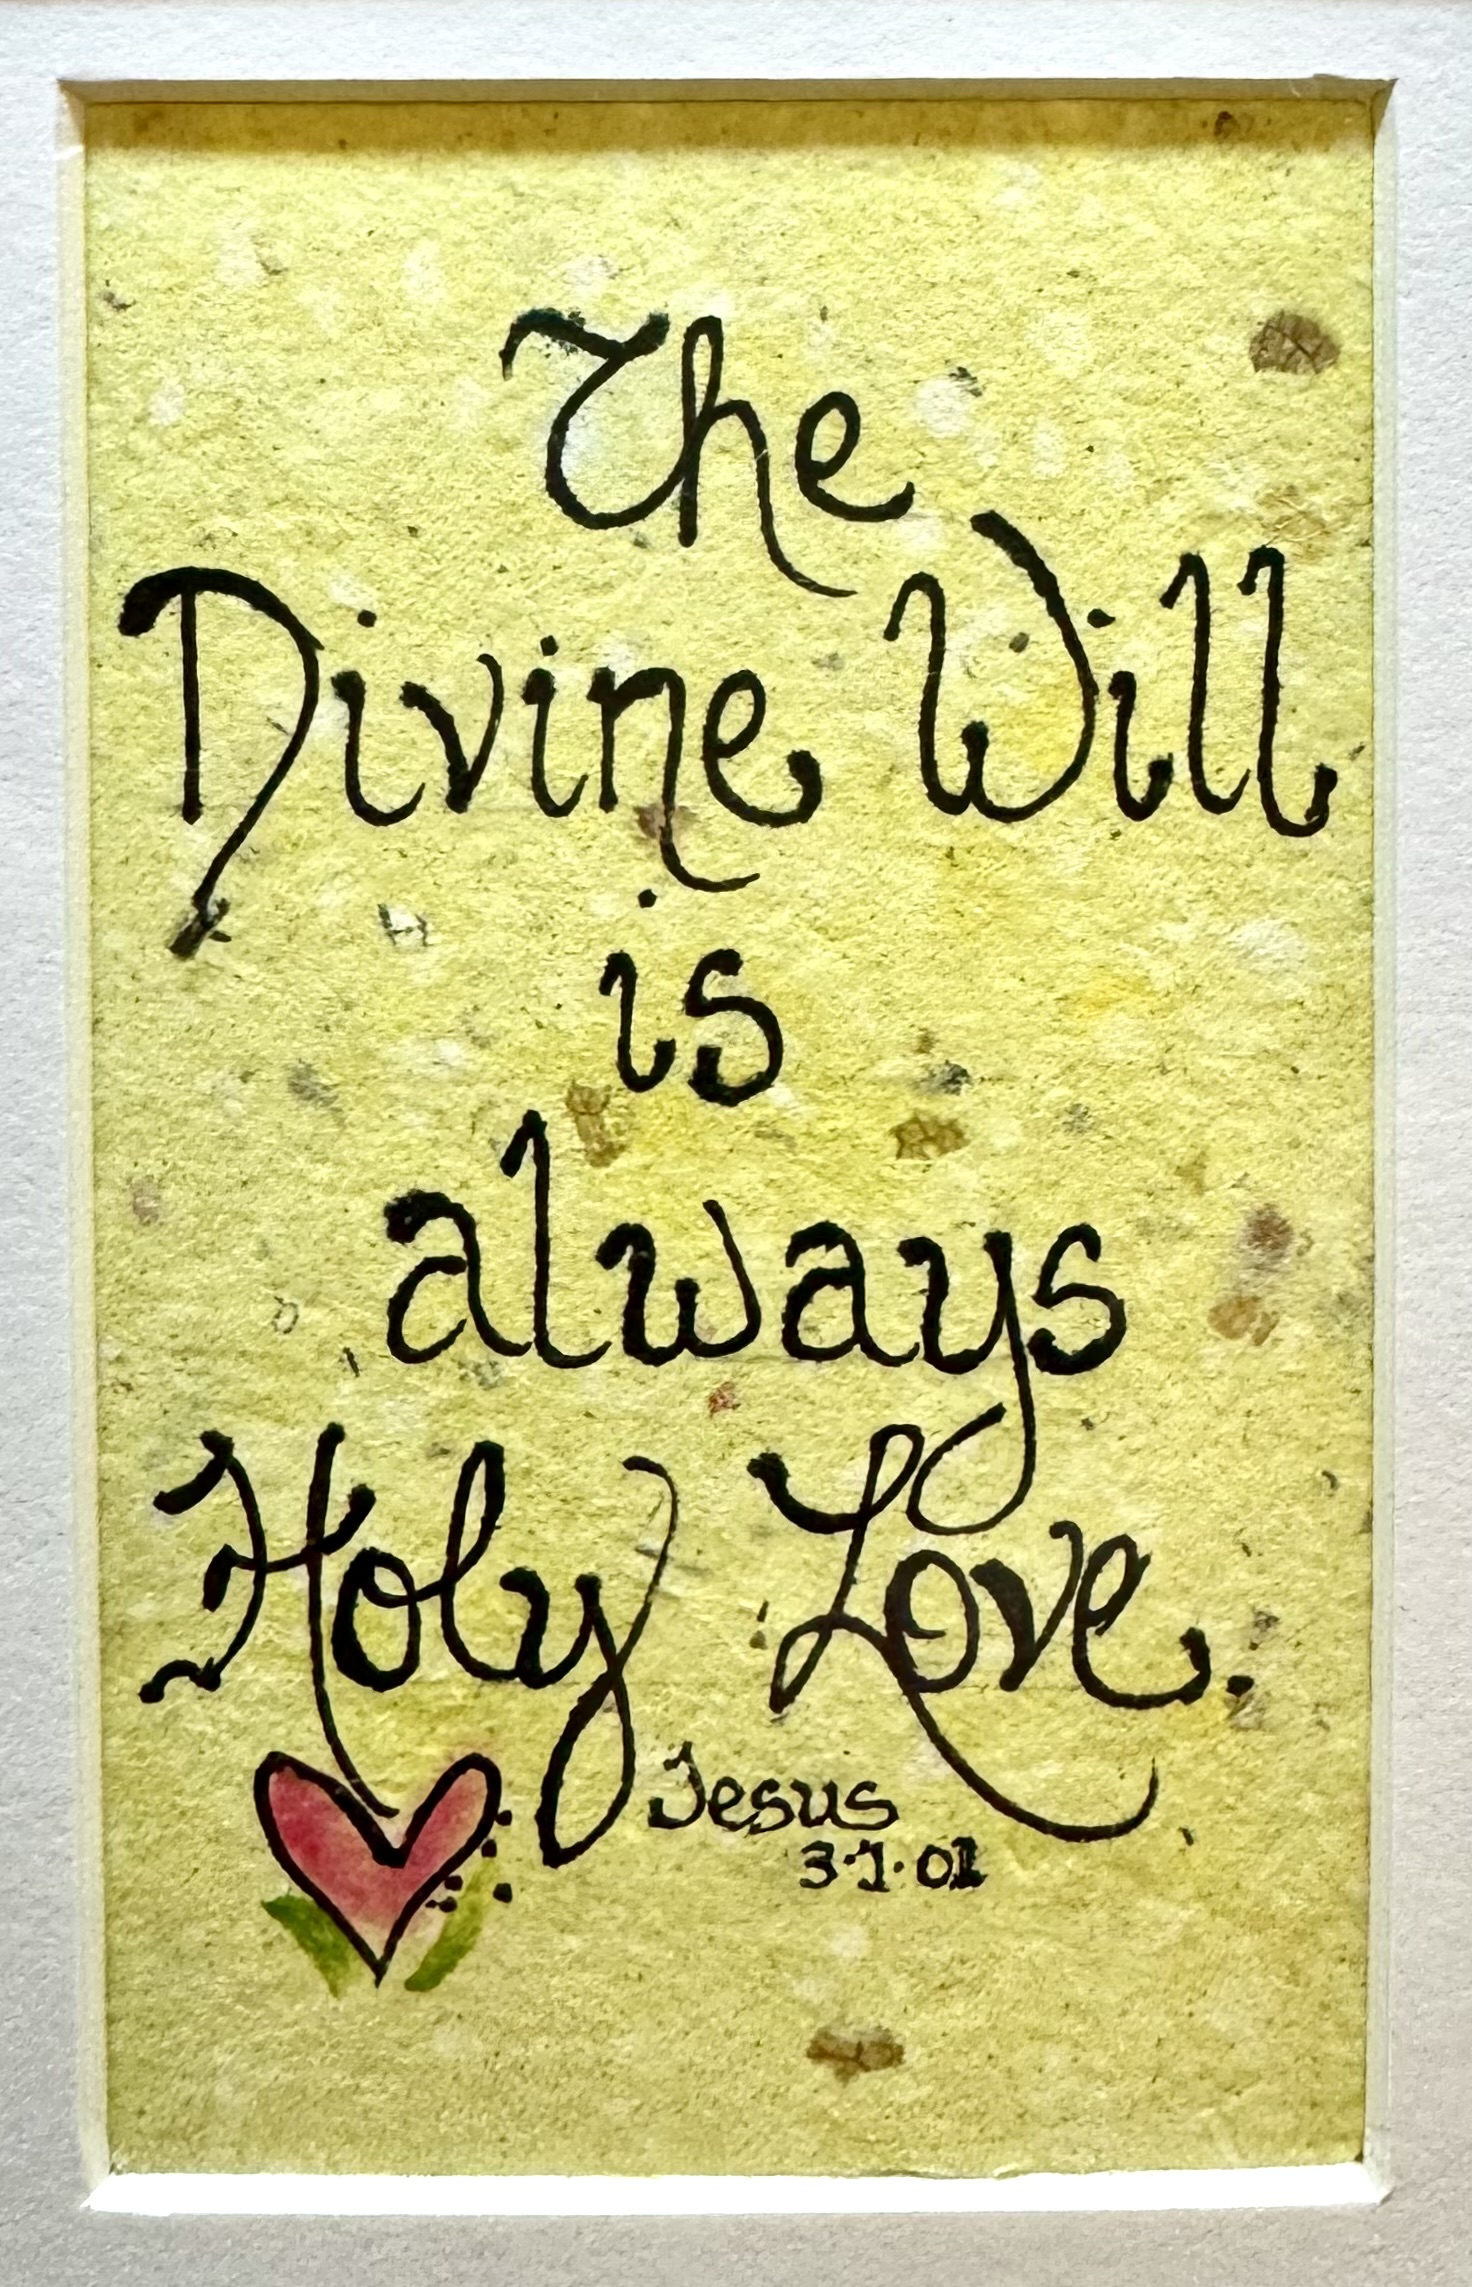 The
Divine Will
is
always
Holy Love.
Jesus
3·1·01